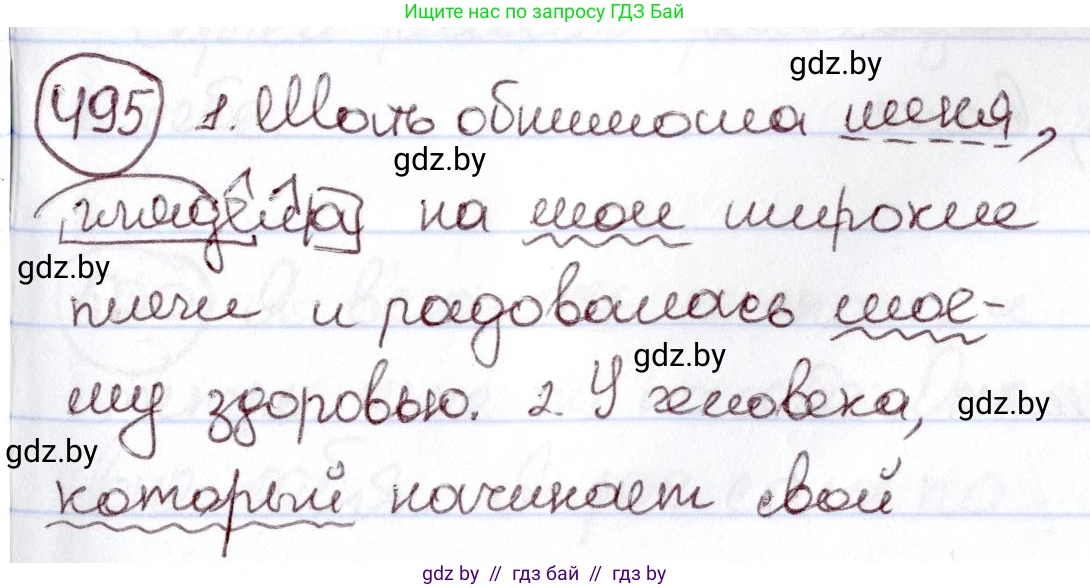 Ищите нас по запросу ГДЗ Бай
gdz.by
495 1. Мать обнимала меня,
gdz.by
глядела на мои широкие
gdz.by
плечи и радовалась мое-
gdz.by
му здоровью. 2 У человека,
gdz.by
gdz.by
который начинает свой
gdz.by // гдз бай // гдз by